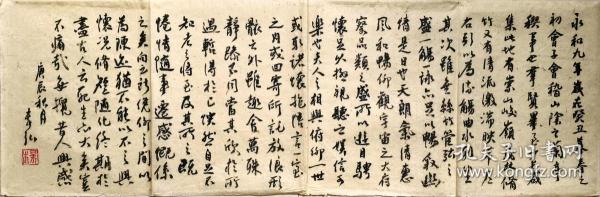 永和九年歲在癸丑暮春之
初會于會稽山陰之蘭亭脩
稧事也群賢畢至少長咸
集此地有崇山峻嶺茂林脩
竹又有清流激湍映帶左
右引以為流觴曲水列坐
其次雖無絲竹管弦之
盛一觴一詠亦足以暢敘幽
情是日也天朗氣清惠
風和暢仰觀宇宙之大俯
察品類之盛所以遊目騁
懷足以極視聽之娛信可
樂也夫人之相與俯仰一世
或取諸懷抱悟言一室
之內或因寄所託放浪形
骸之外雖趣舍萬殊
靜躁不同當其欣於所
遇輒得於己快然自足不
知老之將至及其所之既
倦情隨事遷感慨係
之矣向之所欣俛仰之間以
為陳迹猶不能不以之興
懷況脩短隨化終期於
盡古人云死生亦大矣豈
不痛哉每攬昔人興感
庚辰秋月
孔夫子旧书网